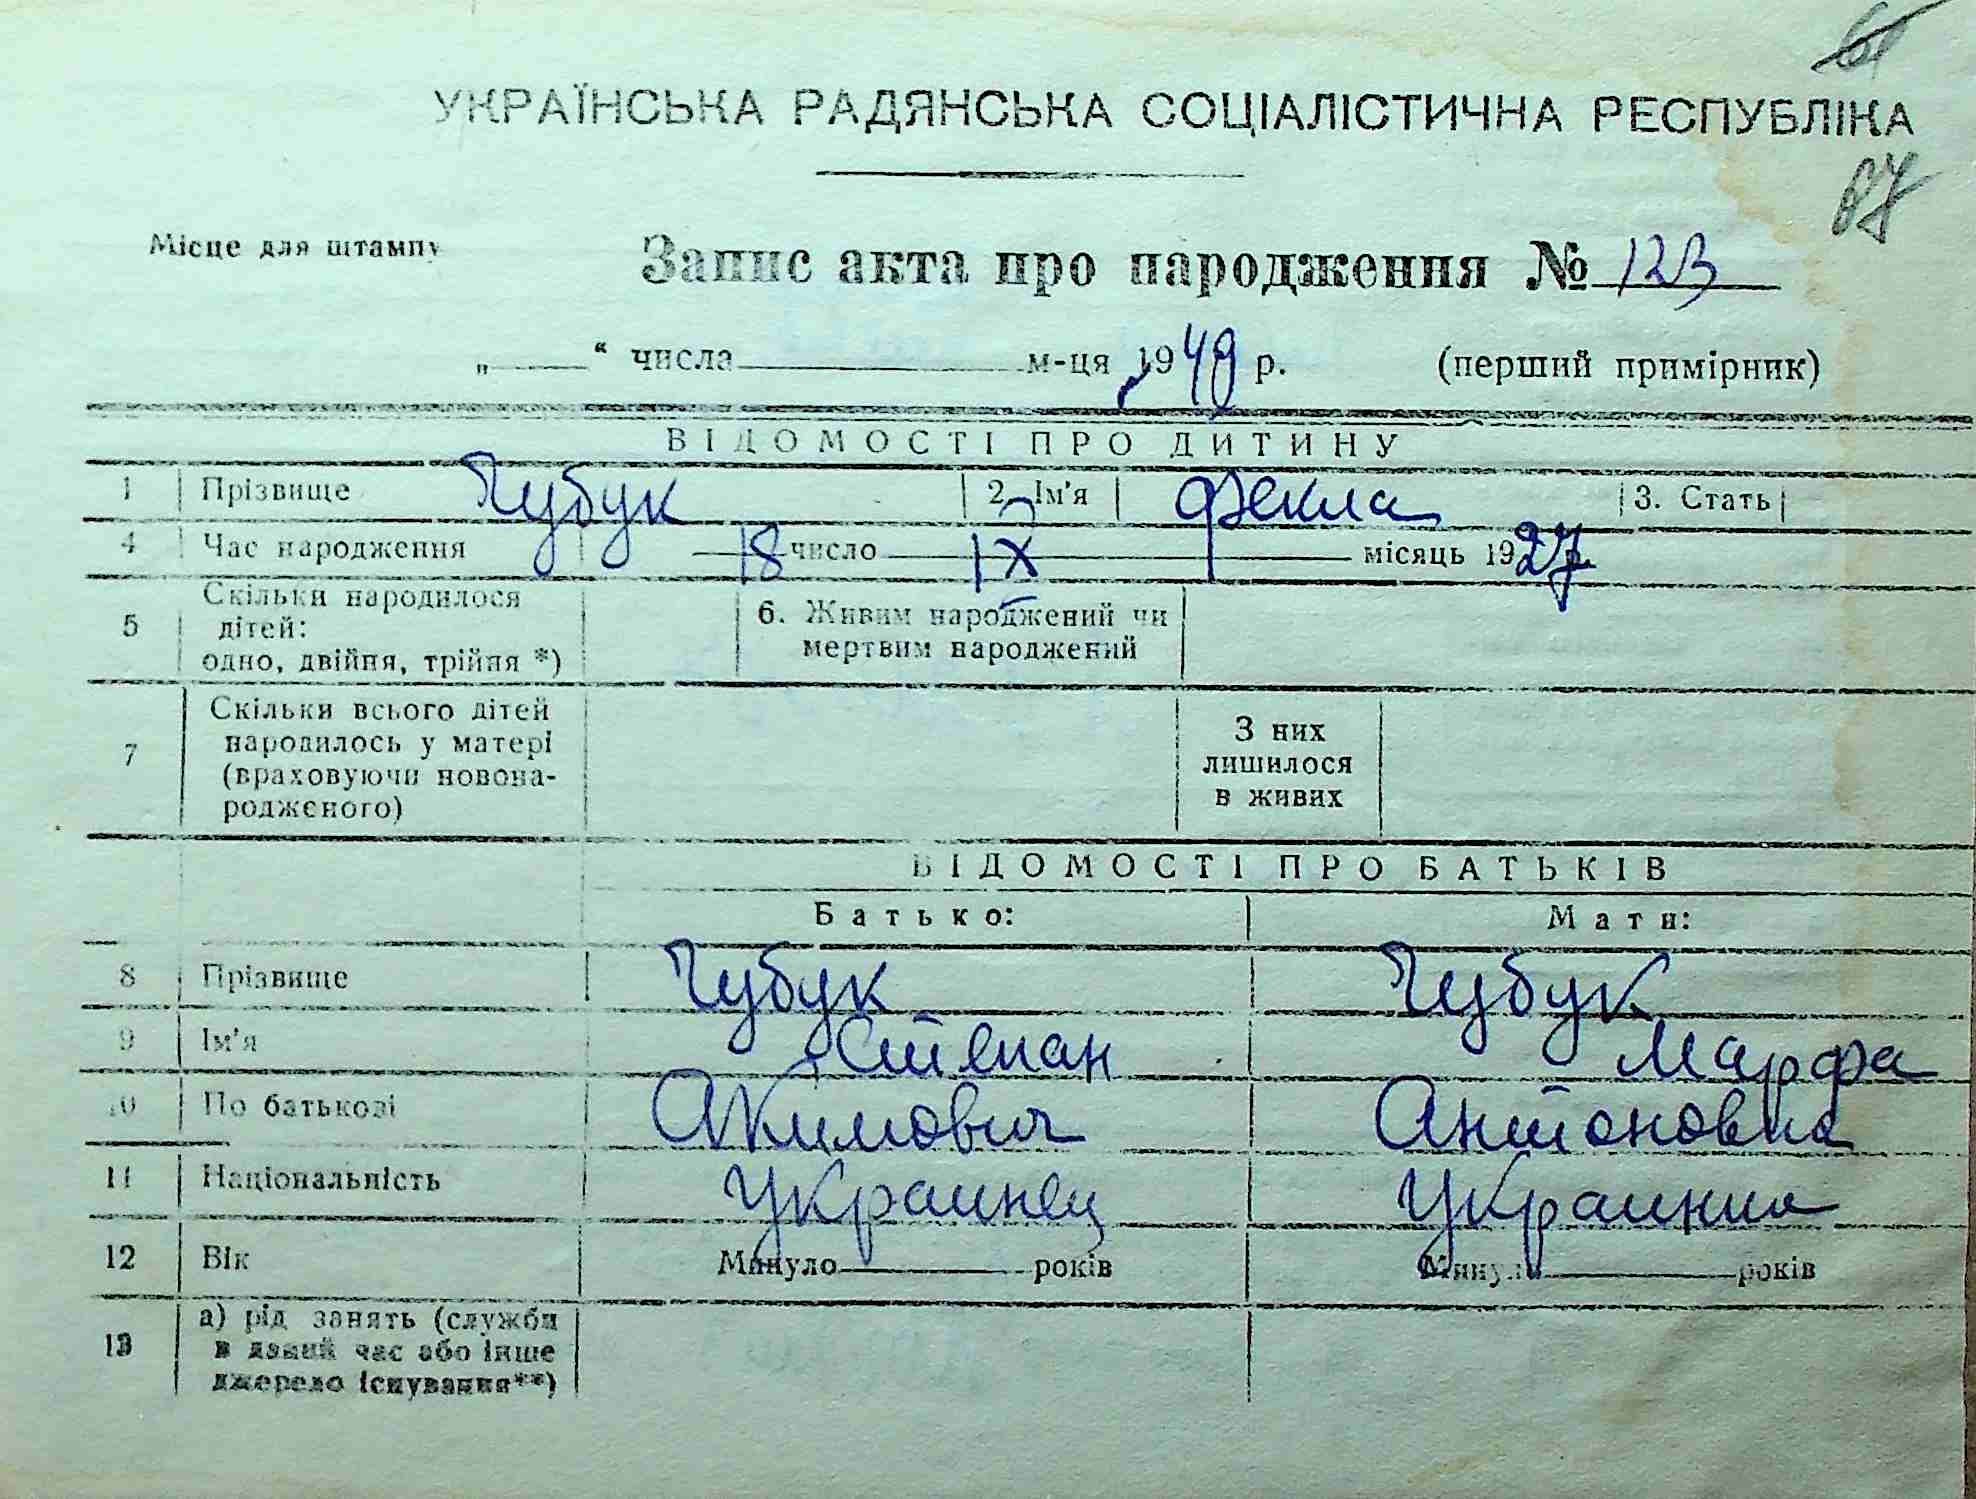 УКРАЇНСЬКА РАДЯНСЬКА СОЦІАЛІСТИЧНА РЕСПУБЛІКА
87
Місце для штампу
Запис акта про народження № 123
„ “ числа м-ця 1949 р. (перший примірник)
ВІДОМОСТІ ПРО ДИТИНУ
1 Прізвище Чубук 2. Ім'я Фекла 3. Стать
4 Час народження 18 число IX місяць 1927 р.
5 Скільки народилося дітей: одно, двійня, трійня *) 6. Живим народжений чи мертвим народжений
7 Скільки всього дітей народилось у матері (враховуючи новонародженого) З них лишилося в живих
ВІДОМОСТІ ПРО БАТЬКІВ
Батько: Мати:
8 Прізвище Чубук Чубук
9 Ім'я Степан Марфа
10 По батькові Акимович Антоновна
11 Національність Украинец Украинка
12 Вік Минуло років Минуло років
13 а) рід занять (служби в даний час або інше джерело існування**)